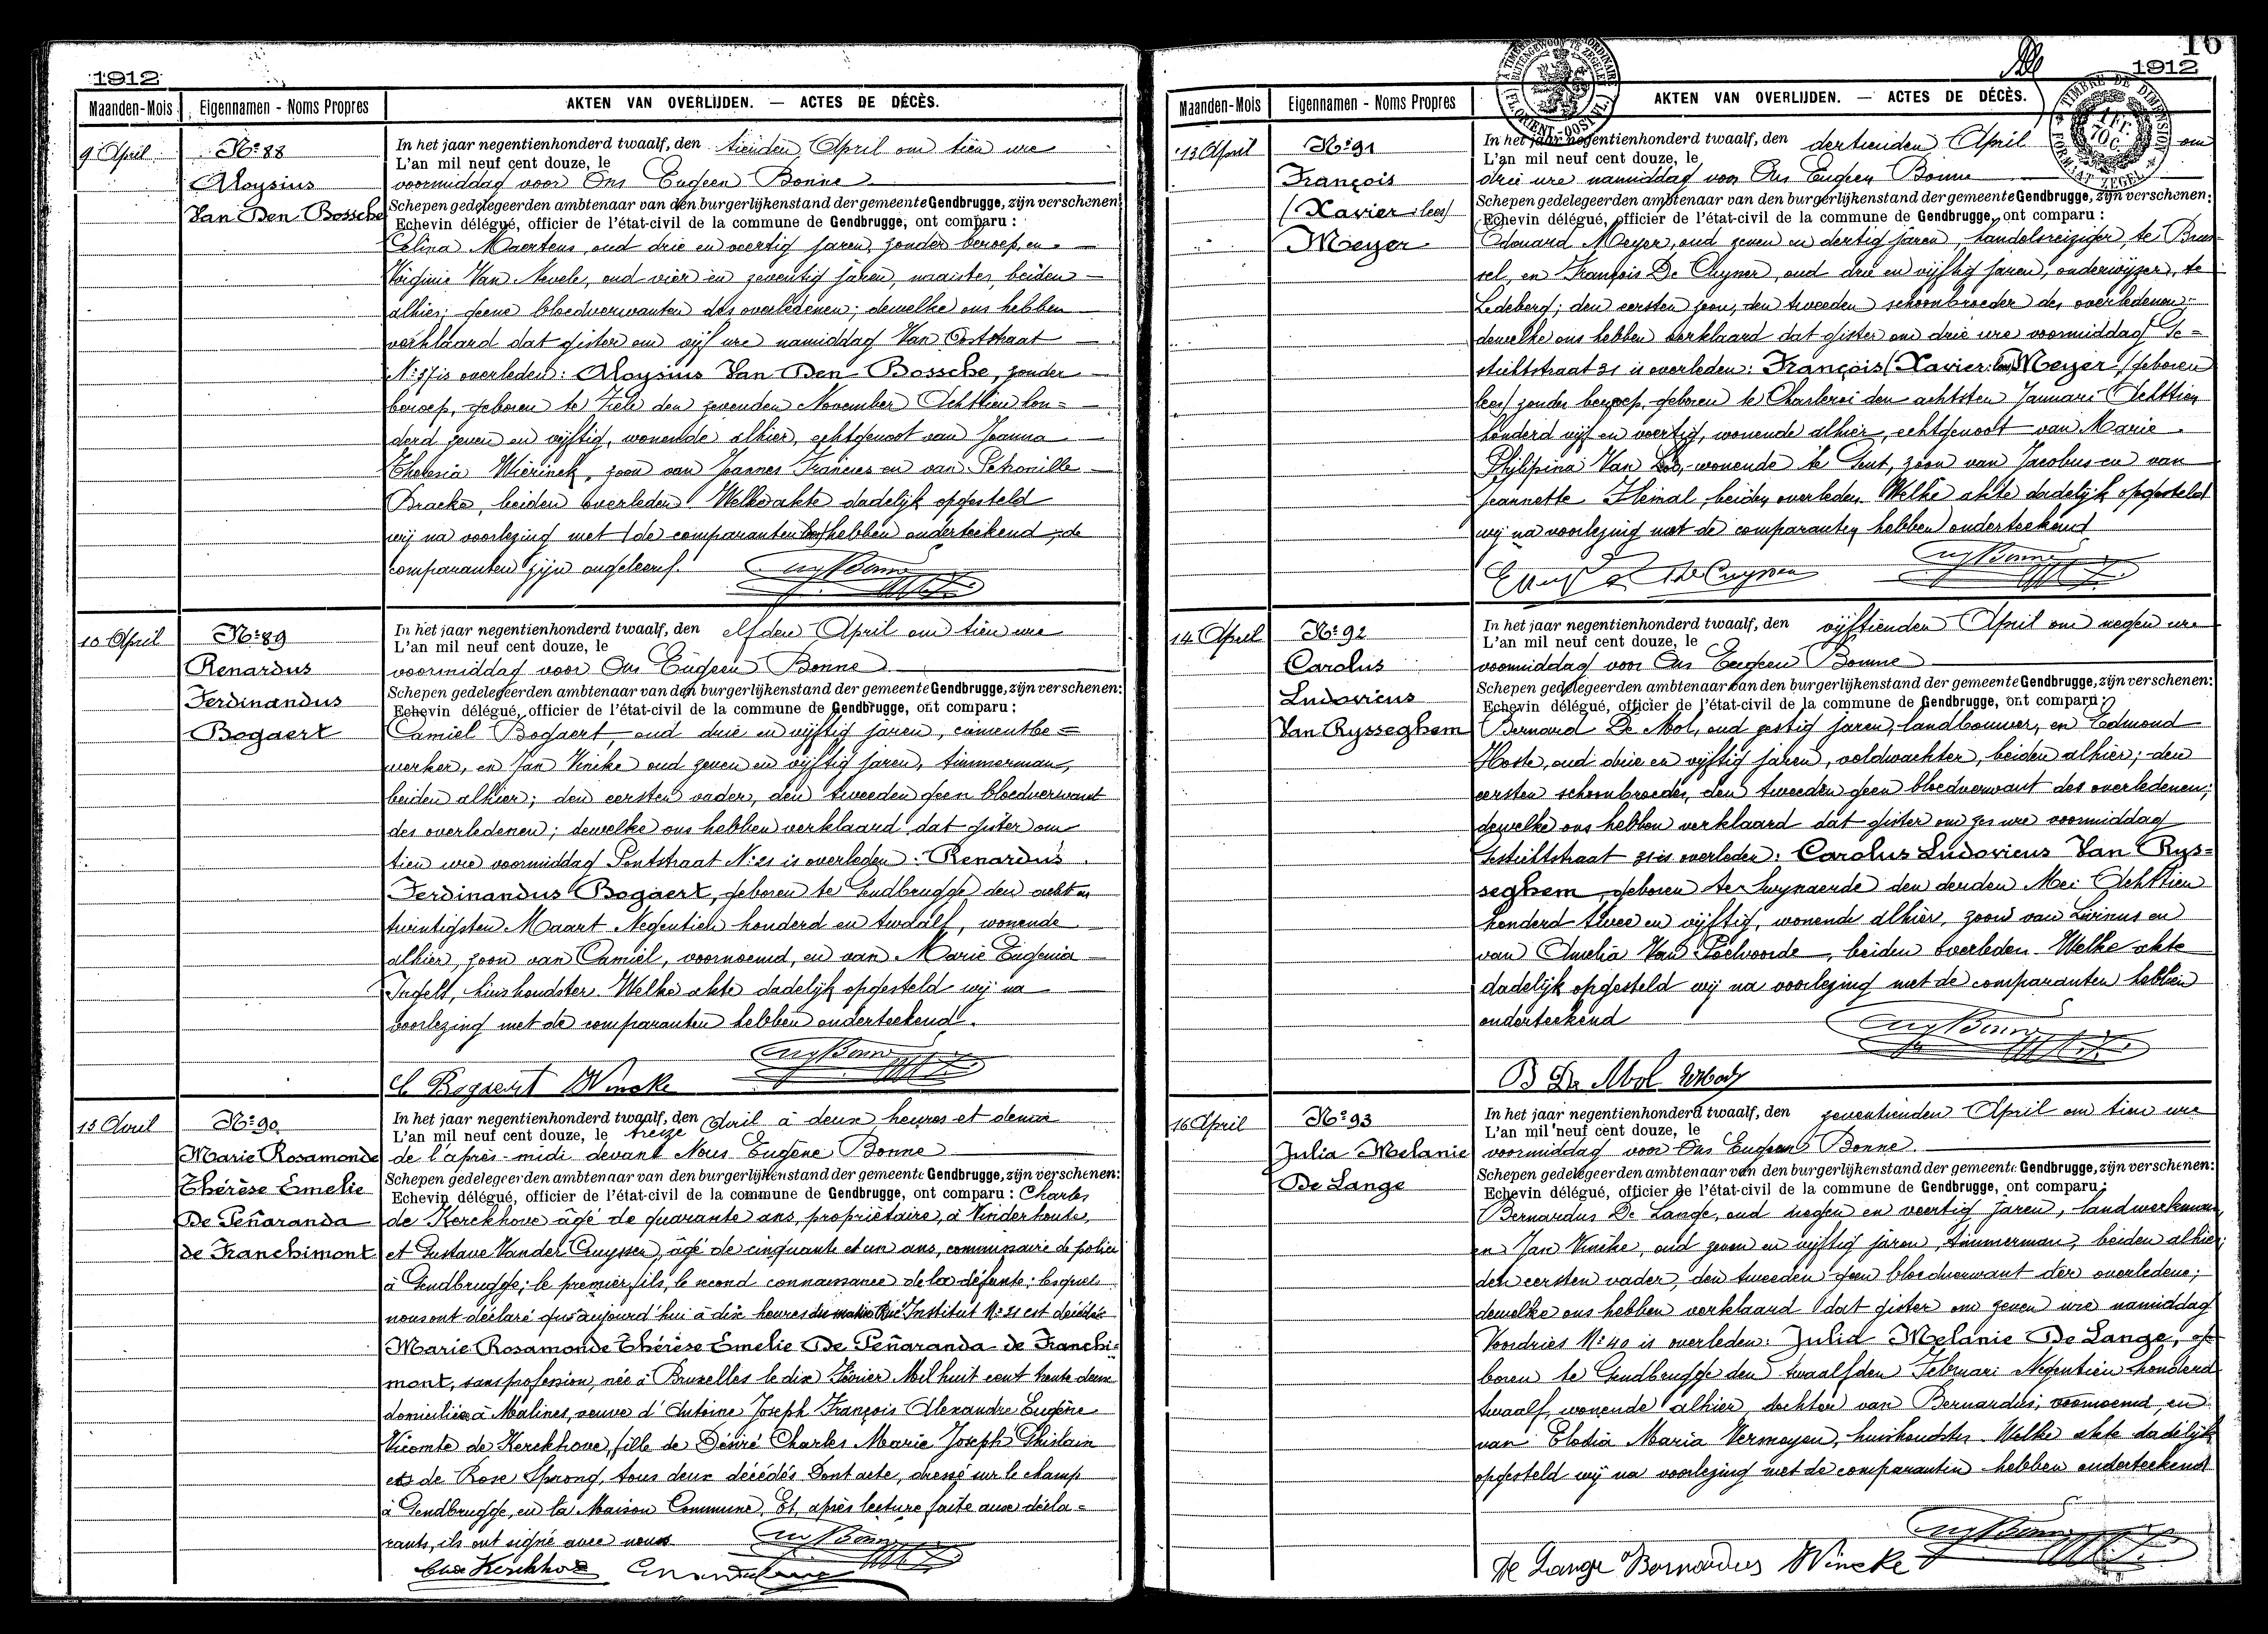 1912
Maanden-Mois Eigennamen - Noms Propres AKTEN VAN OVERLIJDEN. — ACTES DE DÉCÈS.
9 April
No 88
Aloysius
Van Den Bossche
In het jaar negentienhonderd twaalf, den tienden April om tien ure
L'an mil neuf cent douze, le
voormiddag voor Ons Eugeen Bonne
Schepen gedelegeerden ambtenaar van den burgerlijkenstand der gemeente Gendbrugge, zijn verschenen:
Echevin délégué, officier de l'état-civil de la commune de Gendbrugge, ont comparu :
Celina Maertens, oud drie en veertig jaren, zonder beroep, en
Virginie Van Nevele, oud vier en zeventig jaren, naaister, beiden
alhier; geene bloedverwanten des overledenen; dewelke ons hebben
verklaard dat gister om vijf ure namiddag Van Oostraat
No 37 is overleden: Aloysius Van Den Bossche, zonder
beroep, geboren te Zele den zevenden November Achttien hon=
derd zeven en vijftig, wonende alhier, echtgenoot van Joanna
Theresia Wierinck, zoon van Joannes Francies en van Petronille
Bracke, beiden overleden. Welke akte dadelijk opgesteld
wij na voorlezing met (de comparanten lees) hebben onderteekend, de
comparanten zijn ongeleerd.
10 April
No 89
Renardus
Ferdinandus
Bogaert
In het jaar negentienhonderd twaalf, den elfden April om tien ure
L'an mil neuf cent douze, le
voormiddag voor Ons Eugeen Bonne
Schepen gedelegeerden ambtenaar van den burgerlijkenstand der gemeente Gendbrugge, zijn verschenen:
Echevin délégué, officier de l'état-civil de la commune de Gendbrugge, ont comparu :
Camiel Bogaert, oud drie en vijftig jaren, cimentbe=
werker, en Jan Vincke oud zeven en vijftig jaren, timmerman,
beiden alhier; den eersten vader, den tweeden geen bloedverwant
des overledenen; dewelke ons hebben verklaard dat gister om
tien ure voormiddag Pontstraat No 21 is overleden: Renardus
Ferdinandus Bogaert, geboren te Gendbrugge den acht en
twintigsten Maart Negentien honderd en twaalf, wonende
alhier, zoon van Camiel, voornoemd, en van Marie Eugenia
Ingels, huishoudster. Welke akte dadelijk opgesteld wij na
voorlezing met de comparanten hebben onderteekend.
C Bogaert Wincke
13 Avril
No 90
Marie Rosamonde
Thérèse Emelie
De Peñaranda
de Franchimont
In het jaar negentienhonderd twaalf, den
L'an mil neuf cent douze, le treize Avril à deux heures et demie
de l'après-midi devant Nous Eugène Bonne
Schepen gedelegeerden ambtenaar van den burgerlijkenstand der gemeente Gendbrugge, zijn verschenen:
Echevin délégué, officier de l'état-civil de la commune de Gendbrugge, ont comparu : Charles
de Kerckhove âgé de quarante ans, propriétaire, à Vinderhoute,
et Gustave Vander Cruyssen, âgé de cinquante et un ans, commissaire de police
à Gendbrugge; le premier, fils, le second connaissance de la défunte; lesquels
nous ont déclaré que aujourd'hui à dix heures du matin Rue Institut No 21 est décédée
Marie Rosamonde Thérèse Emelie De Peñaranda de Franchi=
mont, sans profession, née à Bruxelles le dix Février Mil huit cent trente deux
domiciliée à Malines, veuve d'Antoine Joseph François Alexandre Eugène
Vicomte de Kerckhove, fille de Désiré Charles Marie Joseph Ghislain
et de Rose Sprong, tous deux décédés. Dont acte, dressé sur le champ
à Gendbrugge, en la Maison Commune. Et, après lecture faite aux décla=
rants, ils ont signé avec nous
16
1912
Maanden-Mois Eigennamen - Noms Propres AKTEN VAN OVERLIJDEN. — ACTES DE DÉCÈS.
13 April
No 91
François
(Xavier lees)
Meyer
In het jaar negentienhonderd twaalf, den dertienden April om
L'an mil neuf cent douze, le
drie ure namiddag voor Ons Eugeen Bonne
Schepen gedelegeerden ambtenaar van den burgerlijkenstand der gemeente Gendbrugge, zijn verschenen:
Echevin délégué, officier de l'état-civil de la commune de Gendbrugge, ont comparu :
Edouard Meyer, oud zeven en dertig jaren, handelsreiziger, te Brus=
sel, en François De Cuyper, oud drie en vijftig jaren, onderwijzer, te
Ledeberg; den eersten zoon, den tweeden schoonbroeder des overledenen;
dewelke ons hebben verklaard dat gister om drie ure voormiddag Ge=
stichtstraat 21 is overleden: François (Xavier: lees) Meyer (geboren
lees) zonder beroep, geboren te Charleroi den achtsten Januari Achttien
honderd vijf en veertig, wonende alhier, echtgenoot van Marie
Philipina Van Loo, wonende te Gent, zoon van Jacobus en van
Jeannette Heinal, beiden overleden. Welke akte dadelijk opgesteld
wij na voorlezing met de comparanten hebben onderteekend
14 April
No 92
Carolus
Ludovicus
Van Rysseghem
In het jaar negentienhonderd twaalf, den vijftienden April om negen ure
L'an mil neuf cent douze, le
voormiddag voor Ons Eugeen Bonne
Schepen gedelegeerden ambtenaar van den burgerlijkenstand der gemeente Gendbrugge, zijn verschenen:
Echevin délégué, officier de l'état-civil de la commune de Gendbrugge, ont comparu :
Bernard De Mol, oud zestig jaren, landbouwer, en Edmond
Hoste, oud drie en vijftig jaren, veldwachter, beiden alhier; den
eersten schoonbroeder, den tweeden geen bloedverwant des overledenen;
dewelke ons hebben verklaard dat gister om zes ure voormiddag
Gestichtstraat 21 is overleden: Carolus Ludovicus Van Rys=
seghem, geboren te Zwynaerde den derden Mei Achttien
honderd twee en vijftig, wonende alhier, zoon van Livinus en
van Amelia Van Poelvoorde, beiden overleden. Welke akte
dadelijk opgesteld wij na voorlezing met de comparanten hebben
onderteekend
B De Mol
16 April
No 93
Julia Melanie
De Lange
In het jaar negentienhonderd twaalf, den zeventienden April om tien ure
L'an mil neuf cent douze, le
voormiddag voor Ons Eugeen Bonne
Schepen gedelegeerden ambtenaar van den burgerlijkenstand der gemeente Gendbrugge, zijn verschenen:
Echevin délégué, officier de l'état-civil de la commune de Gendbrugge, ont comparu :
Bernardus De Lange, oud negen en veertig jaren, landwerkman,
en Jan Vincke, oud zeven en vijftig jaren, timmerman, beiden alhier;
den eersten vader, den tweeden geen bloedverwant der overledene;
dewelke ons hebben verklaard dat gister om zeven ure namiddag
Voordries No 40 is overleden: Julia Melanie De Lange, ge=
boren te Gendbrugge den twaalfden Februari Negentien honderd
twaalf, wonende alhier, dochter van Bernardus, voornoemd, en
van Elodia Maria Vermeyen, huishoudster. Welke akte dadelijk
opgesteld wij na voorlezing met de comparanten hebben onderteekend
De Lange Bernardus Wincke